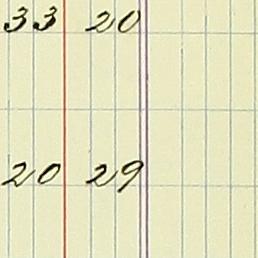 33 20
20 29